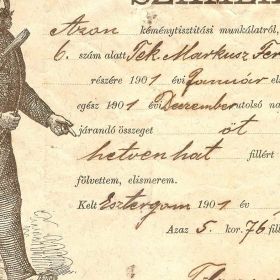 SZÁMLA
Azon kéménytisztitási munkálatról,
6. szám alatt Tek. Markusz Fer
részére 1901 évi Január el
egész 1901 évi Deczember utolsó na
járandó összeget öt
hetvenhat fillért
fölvettem, elismerem.
Kelt Esztergom 1901 év
Azaz 5. kor. 76 fil